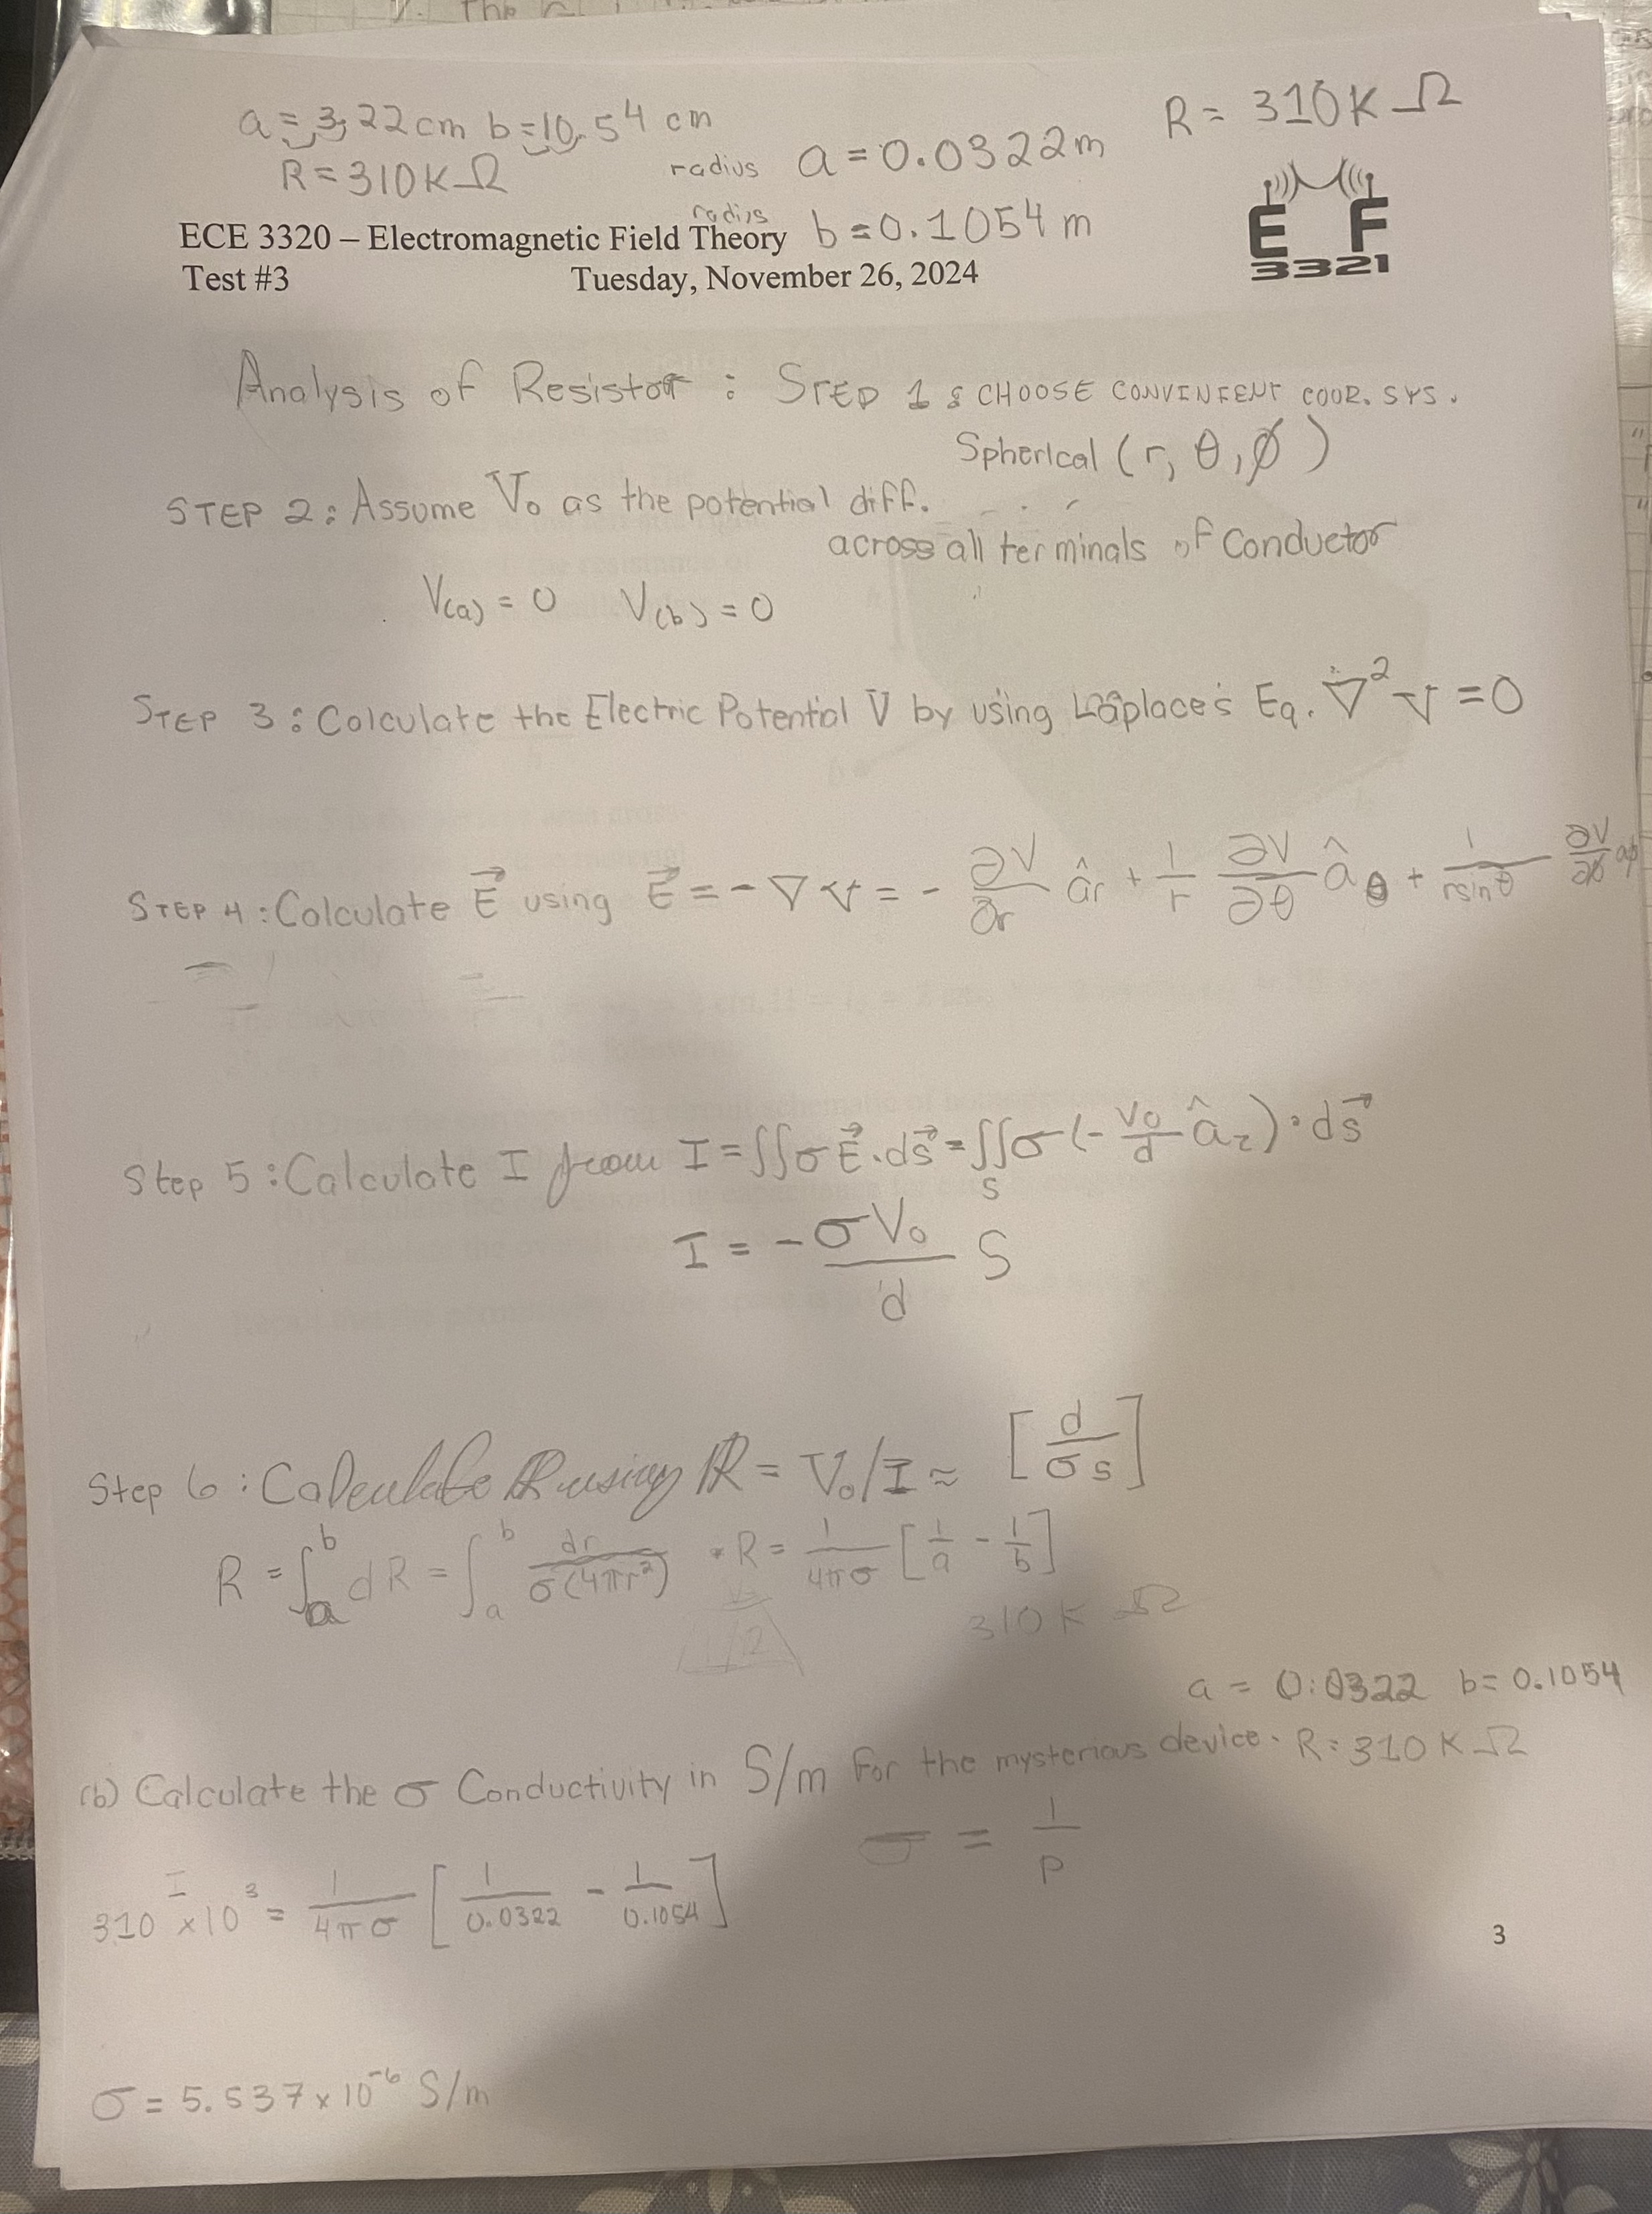 a = 3.22 cm b = 10.54 cm
R = 310K Ω
R = 310K Ω
radius a = 0.0322m
radius b = 0.1054 m
ECE 3320 – Electromagnetic Field Theory
Test #3 Tuesday, November 26, 2024
E F
3321
Analysis of Resistor : STEP 1 : CHOOSE CONVINIENT COOR. SYS.
Spherical (r, θ, ϕ)
STEP 2: Assume V₀ as the potential diff.
across all terminals of Conductor
V(a) = 0 V(b) = 0
STEP 3: Calculate the Electric Potential V by using Laplace's Eq. ∇²V = 0
STEP 4: Calculate E⃗ using E⃗ = -∇V = - ∂V/∂r âr + 1/r ∂V/∂θ âθ + 1/rsinθ ∂V/∂ϕ aϕ
Step 5: Calculate I from I = ∫∫σE⃗·ds⃗ = ∫∫σ(- V₀/d â_z)·ds⃗
S
I = - σV₀/d S
Step 6: Calculate R using R = V₀/I ≈ [d/σs]
R = ∫ₐᵇ dR = ∫ₐᵇ dr/σ(4πr²) • R = 1/4πσ [1/a - 1/b]
310 K Ω
a = 0.0322 b = 0.1054
(b) Calculate the σ Conductivity in S/m for the mysterious device. R = 310 K Ω
σ = 1/ρ
I
310 x10³ = 1/4πσ [1/0.0322 - 1/0.1054]
3
σ = 5.537 x 10⁻⁶ S/m